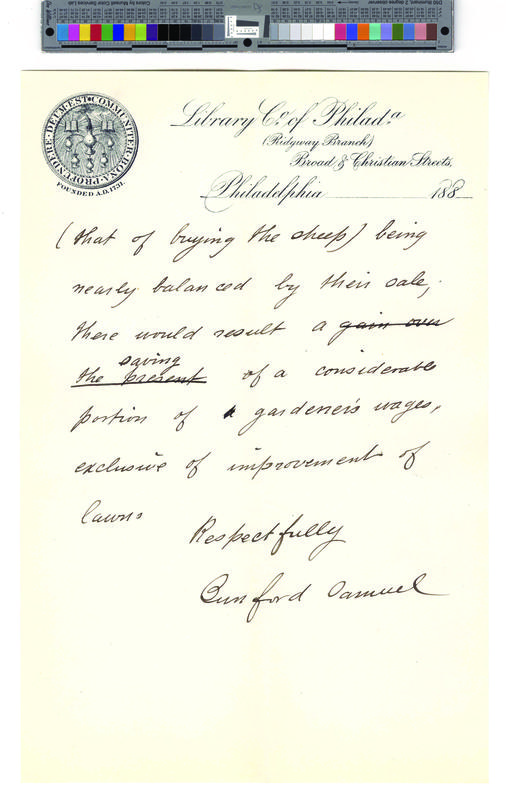 COMMUNITER·BONA·PROFUNDERE·DEUM·EST
FOUNDED A.D. 1731.
Library Co. of Philada.
(Ridgway Branch)
Broad & Christian Streets,
Philadelphia 188
(that of buying the sheep) being
nearly balanced by their sale,
there would result a gain over
saving
the present of a considerable
portion of gardener's wages,
exclusive of improvement of
lawns
Respectfully
Bunford Samuel